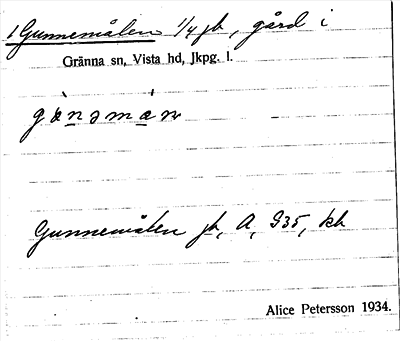 1 Gunnemålen 1/4 jb, gård i
Gränna sn, Vista hd, Jkpg. l.
Gunnemålen jb, A, 935, kb
Alice Petersson 1934.